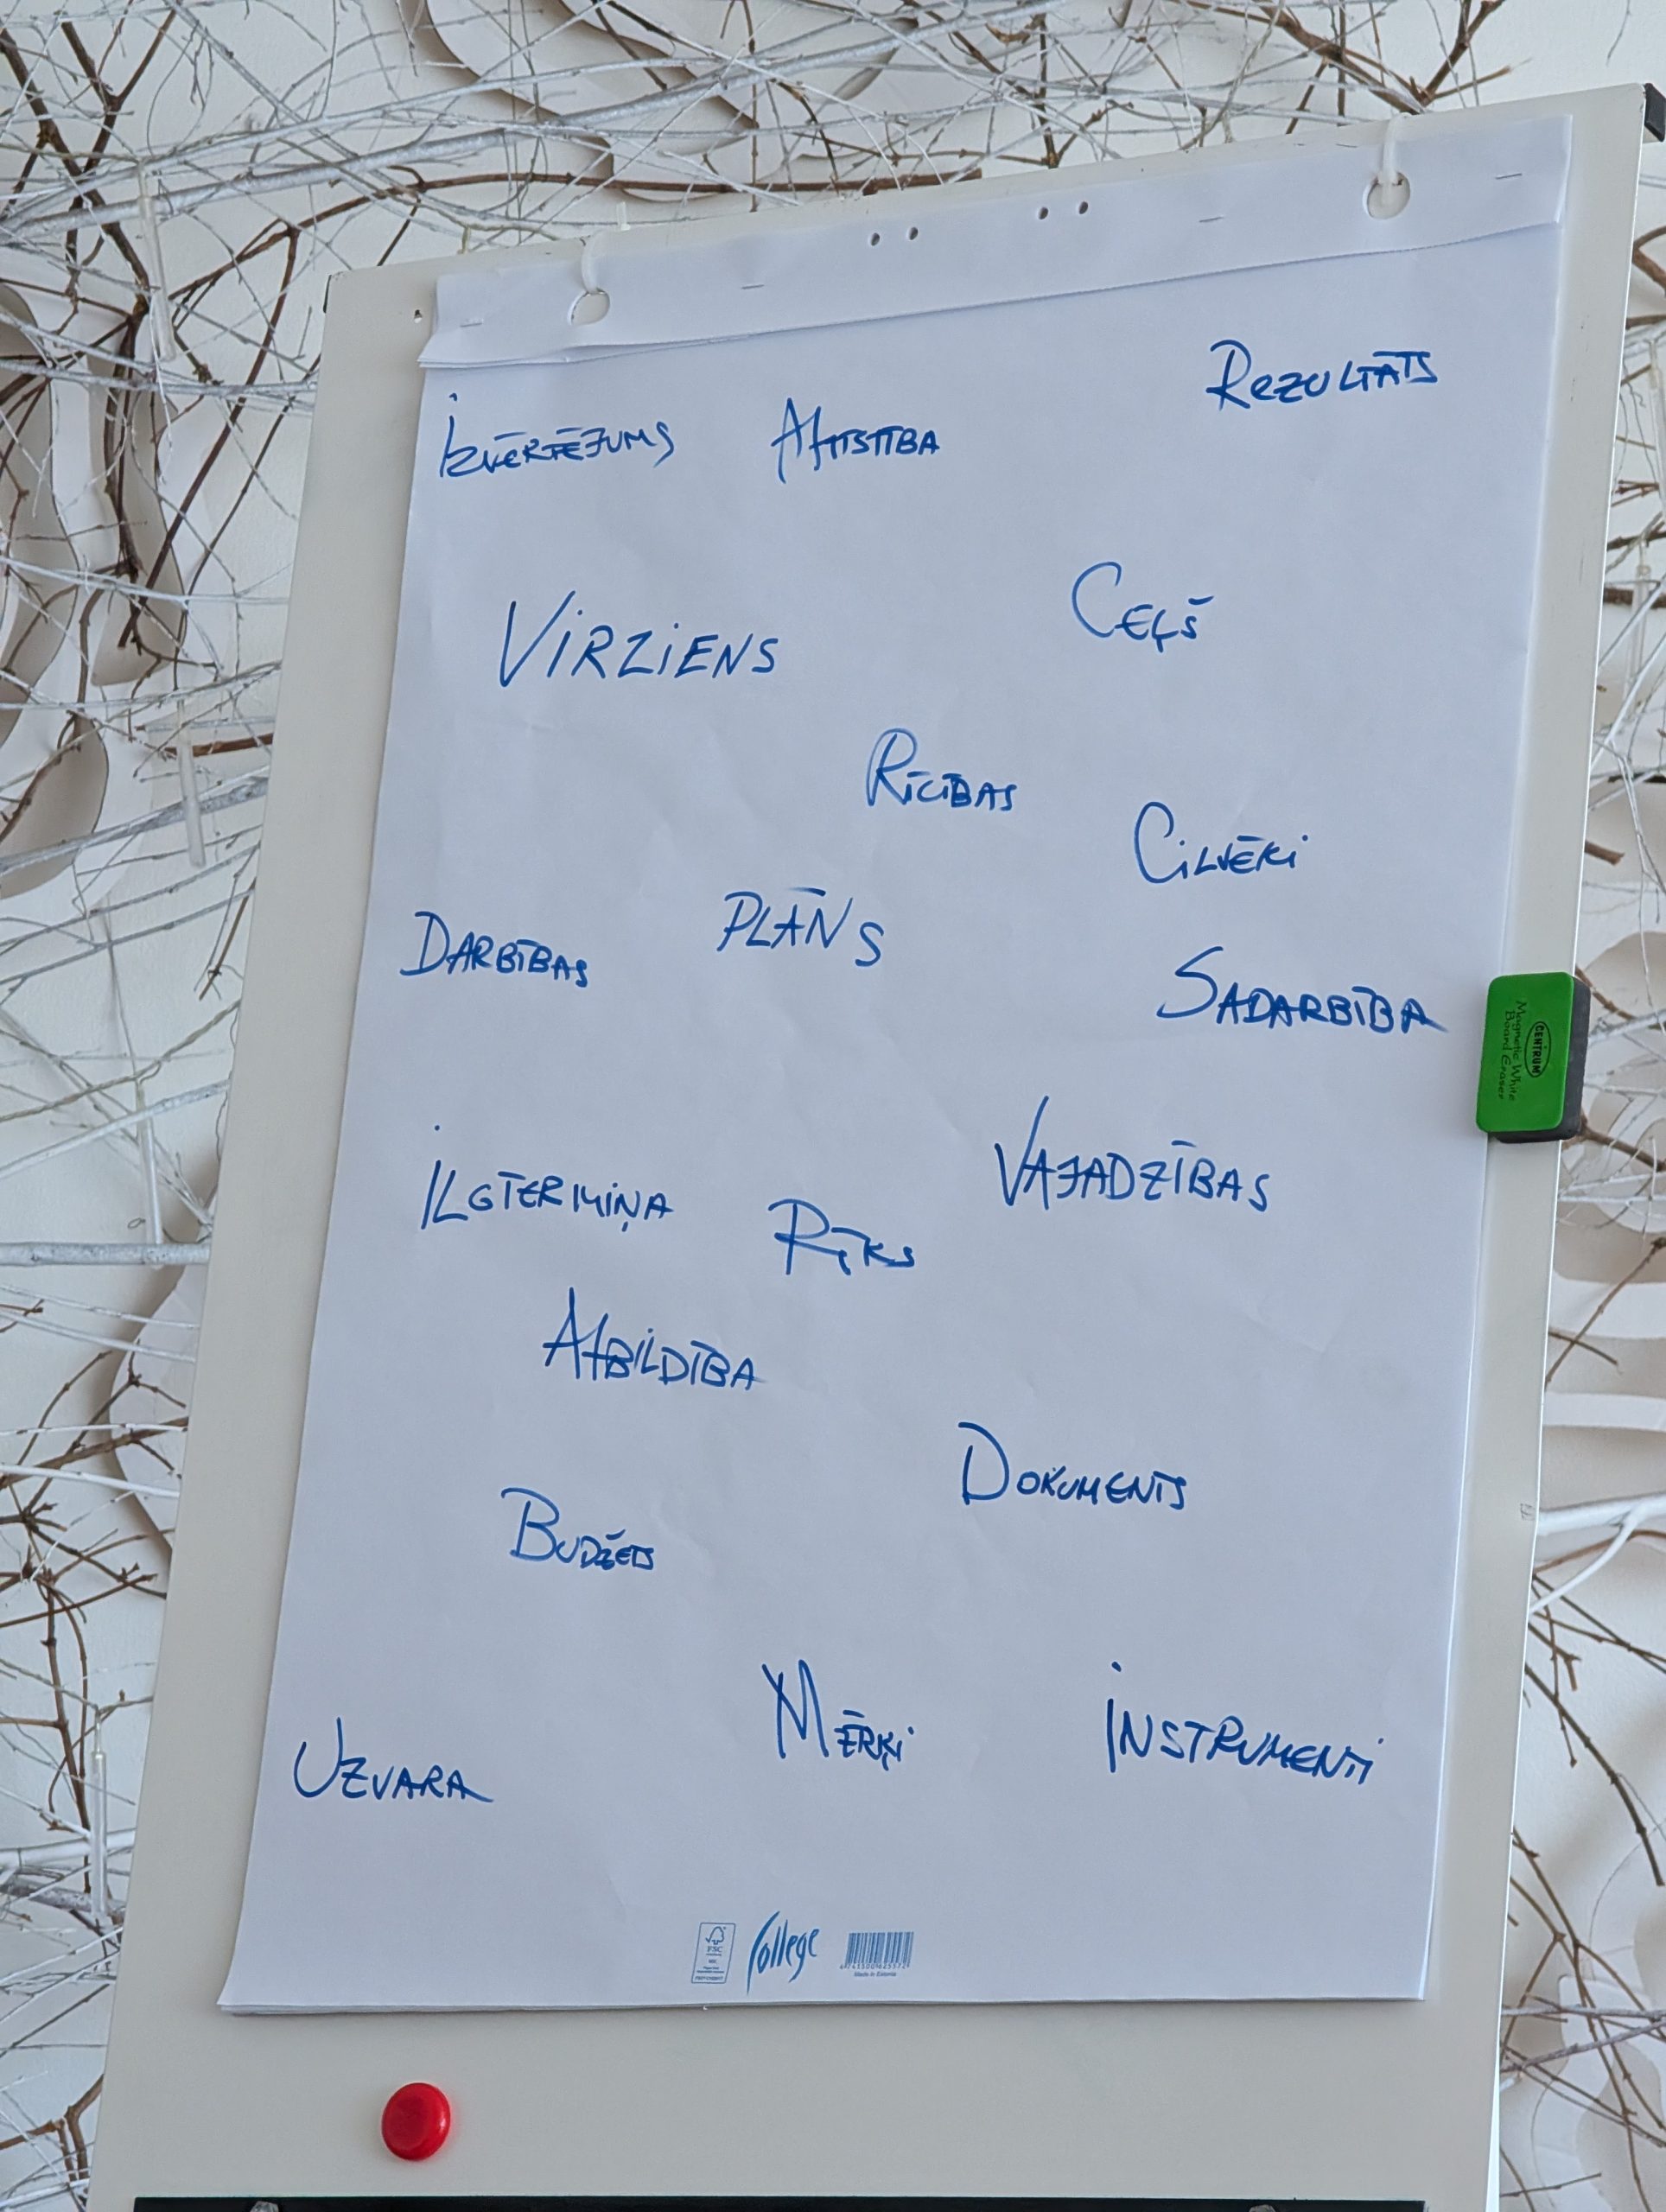 Izvērtējums Attīstība Rezultāts
Virziens Ceļš
Rīcības
Cilvēki
Darbības Plāns
Sadarbība
Ilgtermiņa Rīks Vajadzības
Atbildība
Dokuments
Budžets
Uzvara Mērķi Instrumenti
CENTRUM
Magnetic White
Board Eraser
FSC
College
Made in Estonia